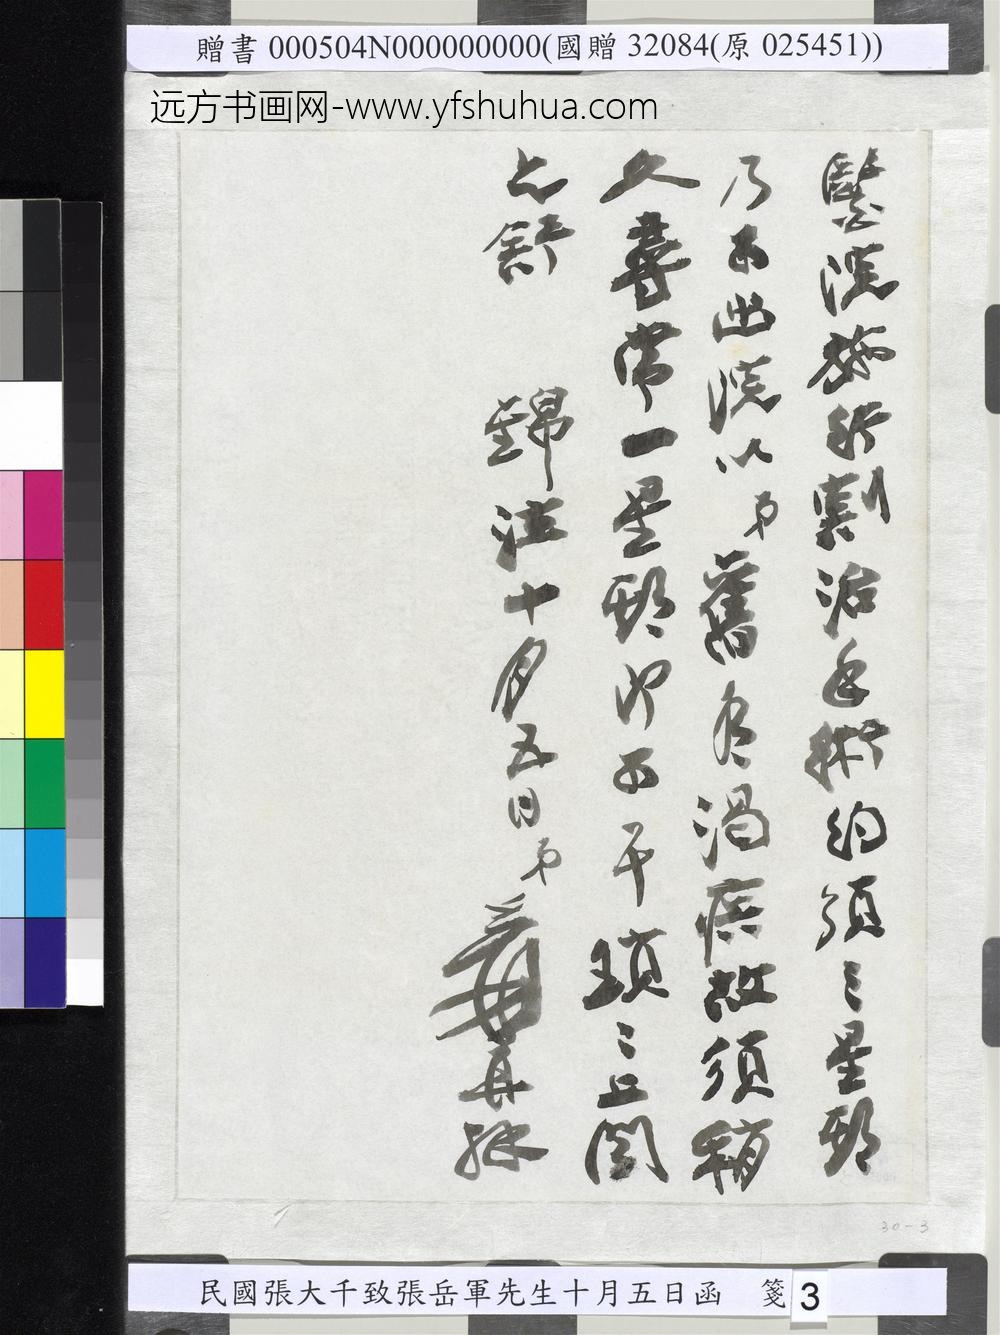 贈書 000504N000000000(國贈 32084(原 025451))
远方书画网-www.yfshuhua.com
醫院施行割治手術約須三星期
乃可出院以弟舊有渴疾故須稍
久尋常一星期即可耳瑣瑣上聞
以舒 錦注十月五日弟爰再拜
30-3
民國張大千致張岳軍先生十月五日函 箋 3